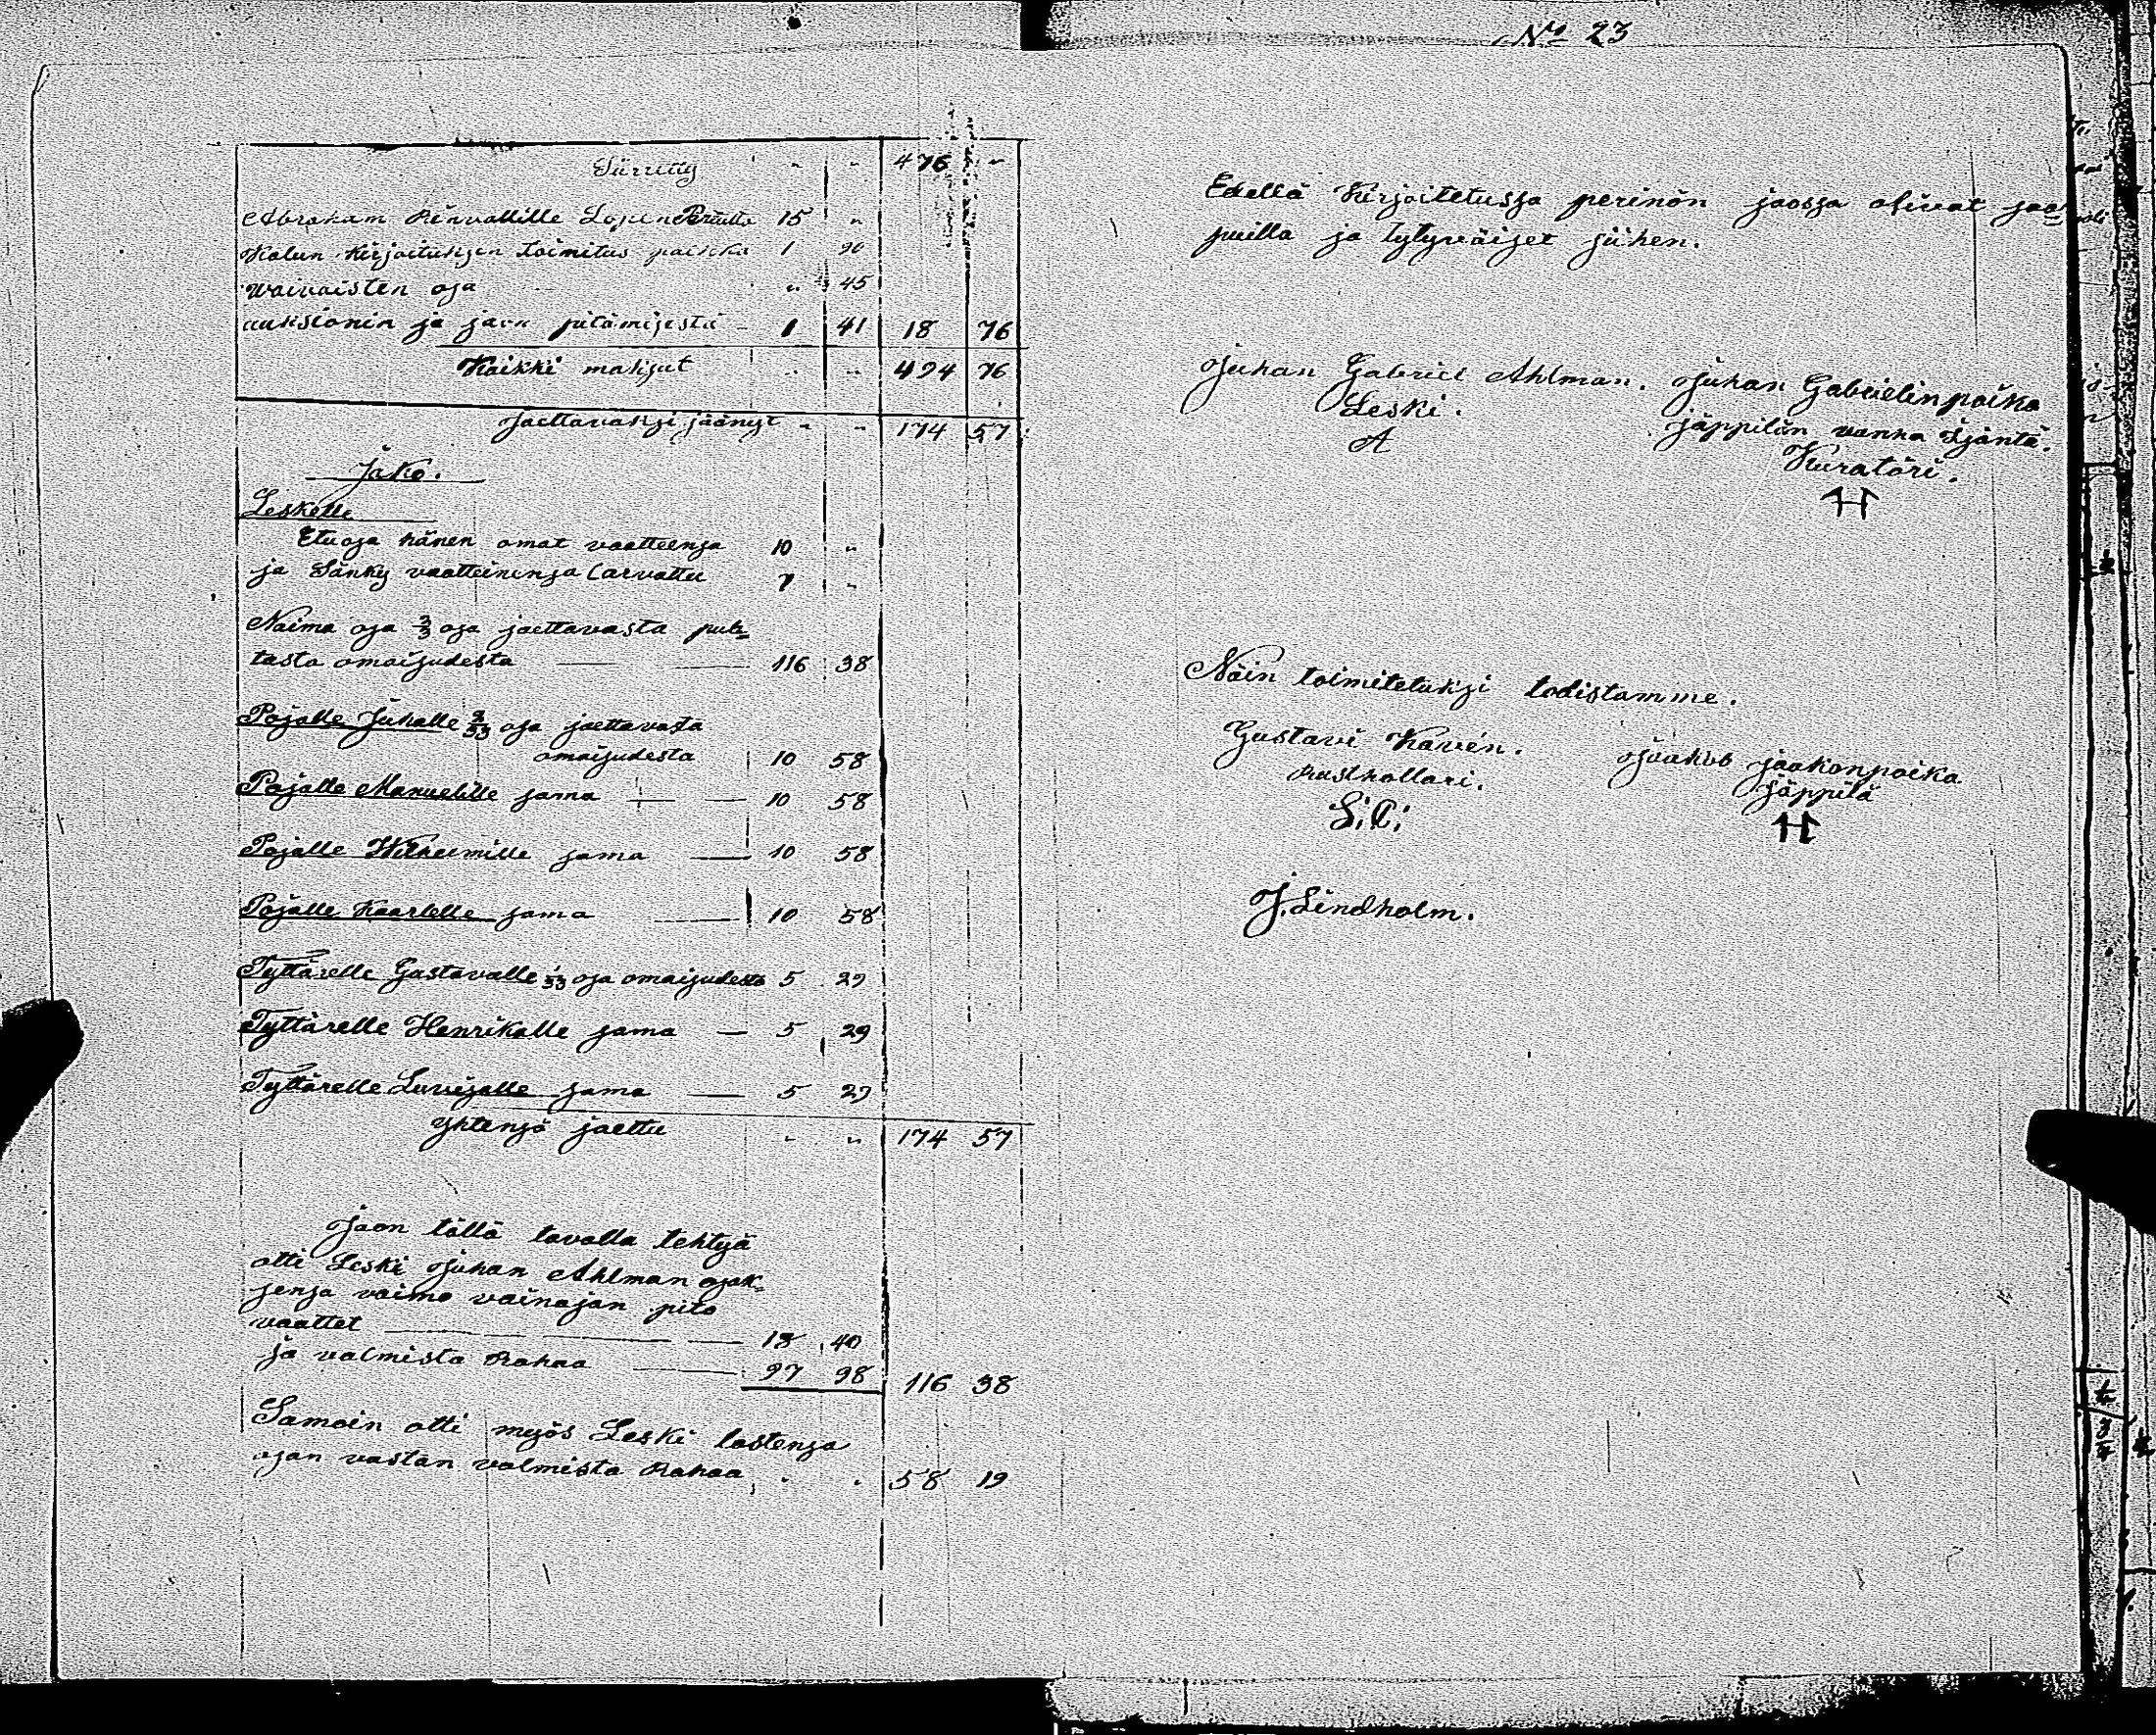 No 23
Siirretty " " 476 "
Abraham Renvallille Lopen Perättä 15 "
Kalun kirjoituksen toimitus palkka 1 90
waivaisten osa " 45
auksionin ja jaon pitämisestä 1 41 18 76
Kaikki maksut " " 494 76
Jaettavaksi jäänyt " " 174 57
Jako.
Leskelle
Etuosa hänen omat vaatteensa 10 "
ja Sänky vaatteinensa (arvattu 7 "
Naima osa 2/3 osa jaettavasta puh=
tasta omaisudesta 116 38
Pojalle Juhalle 2/33 osa jaettavasta
omaisudesta 10 58
Pojalle Manuelille sama 10 58
Pojalle Wilhelmille sama 10 58
Pojalle Kaarlelle sama 10 58
Tyttärelle Gustavalle 1/33 osa omaisudesta 5 29
Tyttärelle Henrikalle sama 5 29
Tyttärelle Luvisalle sama 5 29
Yhtensä jaettu " " 174 57
Jaon tällä tavalla tehtyä
otti Leski Juhan Ahlman osak=
sensa vaimo vainajan pito
vaattet 18 40
ja valmista Rahaa 97 98 116 38
Samoin otti myös Leski lastensa
osan vastan valmista Rahaa " " 58 19
Edellä Kirjoitetussa perinön jaossa olivat saa=
puilla ja tytyväiset siihen.
Juhan Gabriel Ahlman. Juhan Gabrielinpoika
Leski. Jäppilän vanha Isäntä.
A Kuratöri.
Näin toimitetuksi todistamme.
Gustavi Kavén. Jaakob Jaakonpoika
Rusthollari. Jäppilä
S; C;
J. Lindholm.